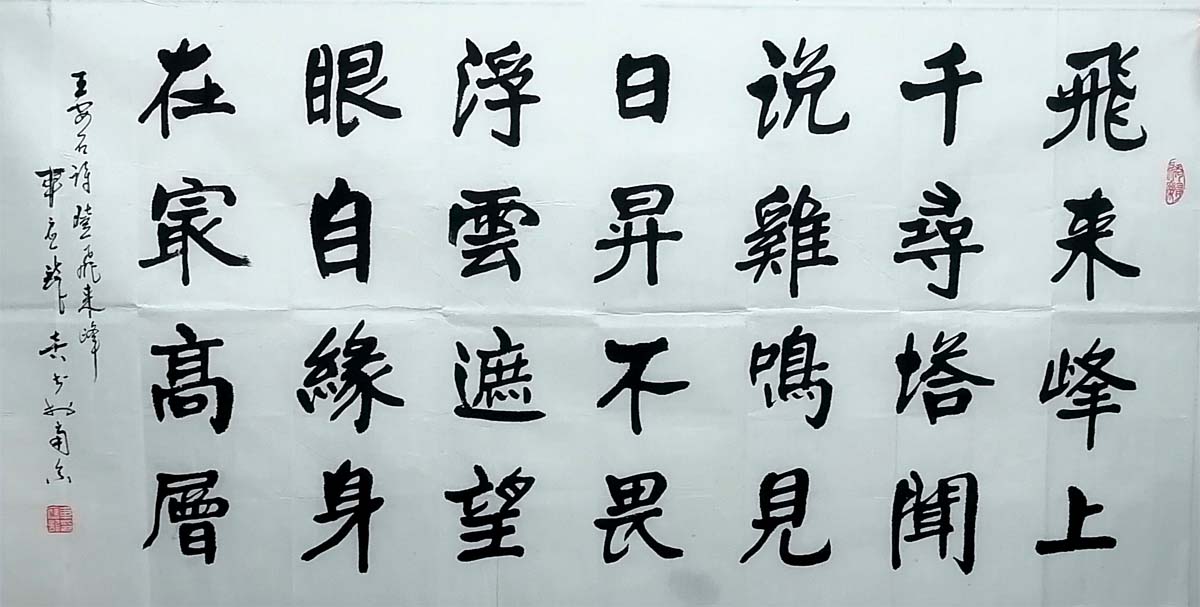 飛来峰上
千尋塔聞
说雞鳴見
日昇不畏
浮雲遮望
眼自緣身
在冣高層
王安石詩登飛来峰